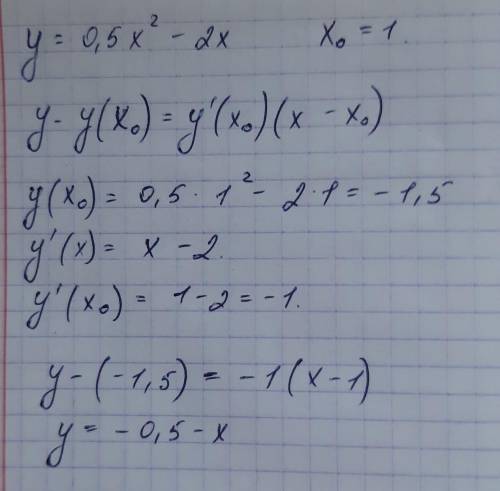 y = 0,5x² - 2x    x₀ = 1.
y - y(x₀) = y'(x₀)(x - x₀)
y(x₀) = 0,5 · 1² - 2 · 1 = -1,5
y'(x) = x - 2.
y'(x₀) = 1 - 2 = -1.
y - (-1,5) = -1(x - 1)
y = -0,5 - x